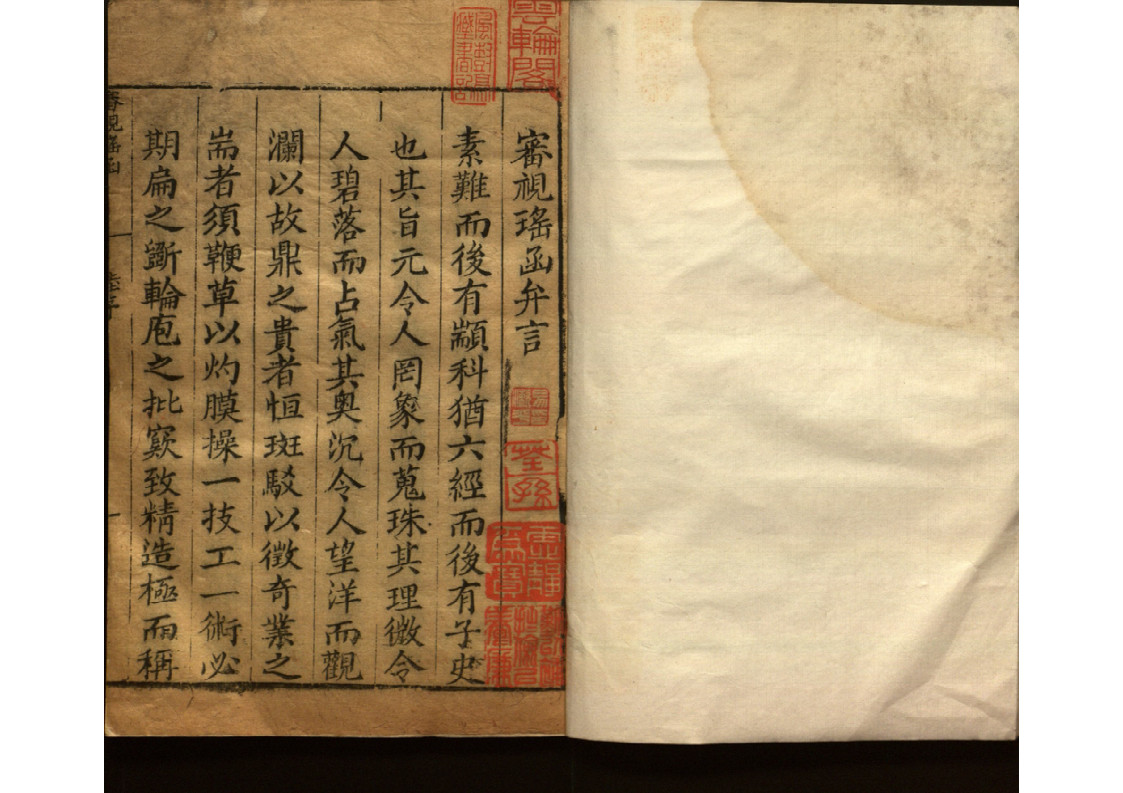 審視瑤函弁言
素難而後有顓科猶六經而後有子史
也其旨元令人罔象而蒐珠其理微令
人碧落而占氣其奧沉令人望洋而觀
瀾以故鼎之貴者恒斑駁以徵奇業之
耑者須鞭草以灼膜操一技工一術必
期扁之斵輪庖之批窽致精造極而稱
雲輪閣
荃孫